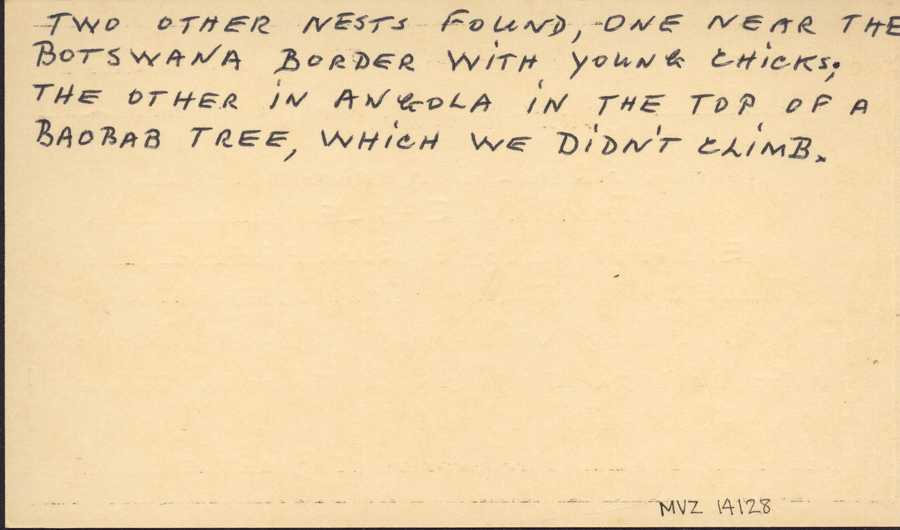 TWO OTHER NESTS FOUND, ONE NEAR THE
BOTSWANA BORDER WITH YOUNG CHICKS;
THE OTHER IN ANGOLA IN THE TOP OF A
BAOBAB TREE, WHICH WE DIDN'T CLIMB.
MVZ 14128